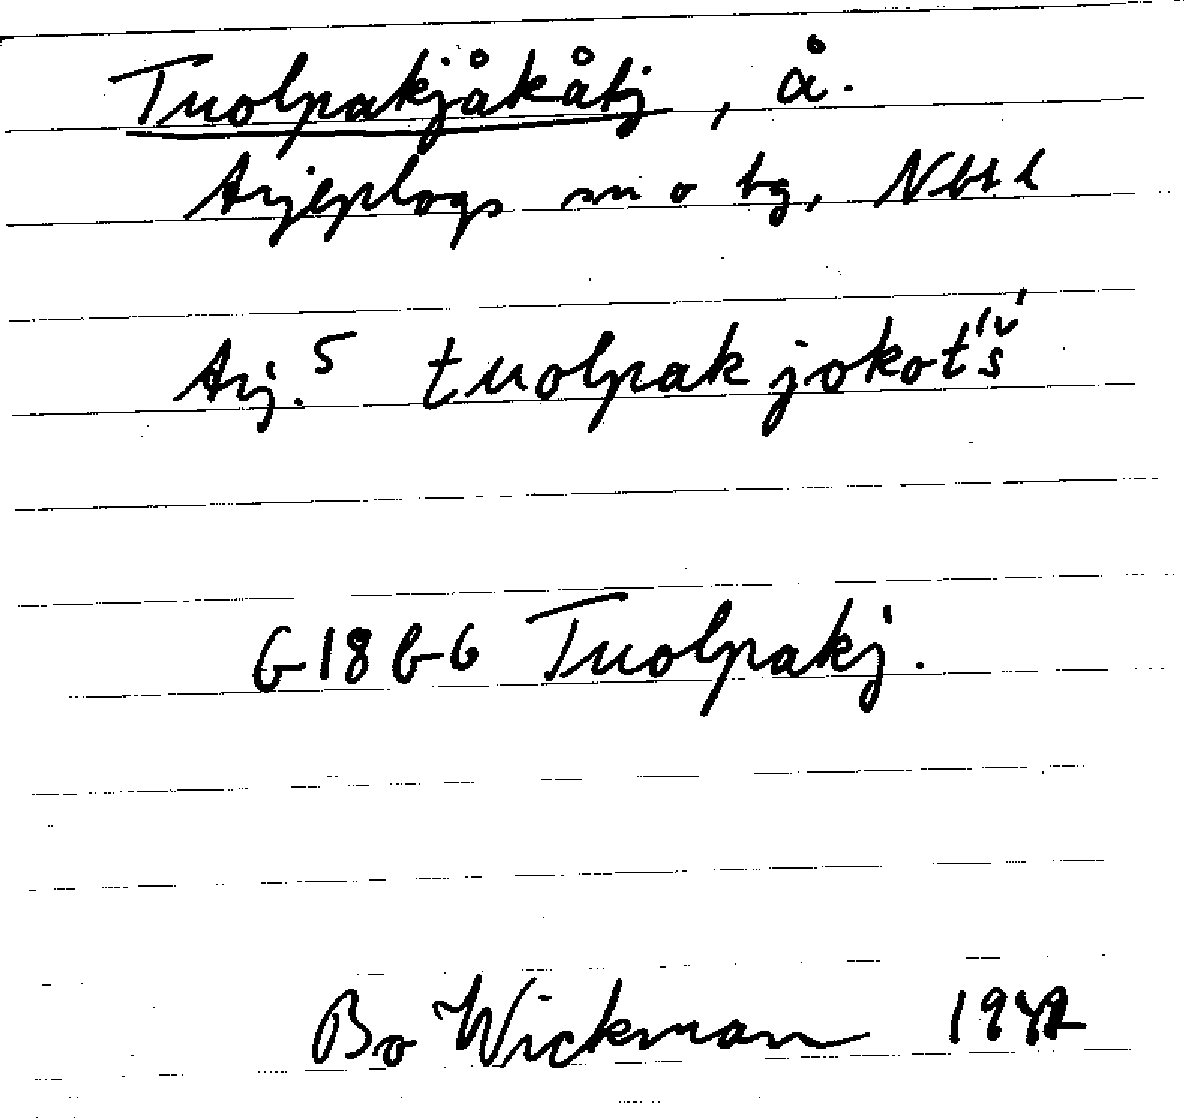 Tuolpakjåkåtj, å.
Arjeplogs sn o tg, Nbt l
Arj. 5 tuolpakjokot'š'
G 18 b-6 Tuolpakj.
Bo Wickman